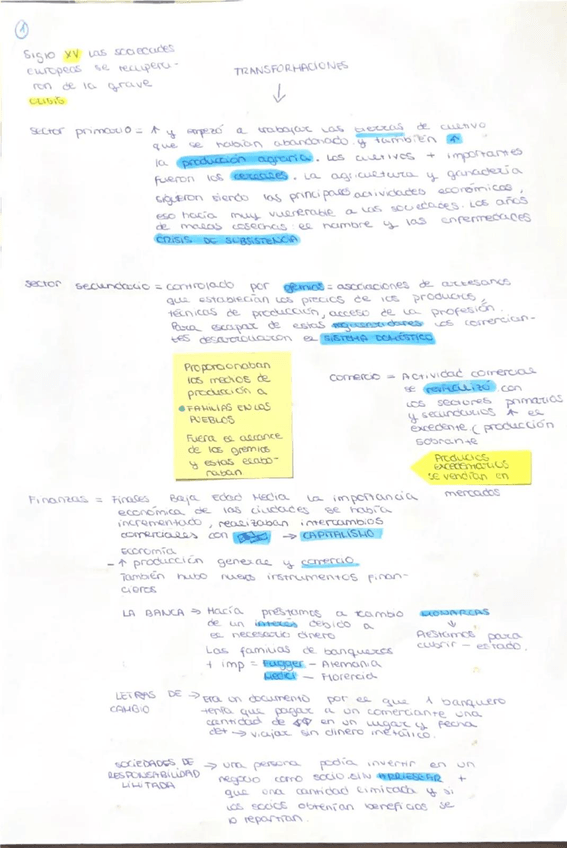 1
Siglo XV las sociedades
europeas se recupera-
ron de la grave
crisis
TRANSFORMACIONES
Sector primario = ↑ y empezó a trabajar las tierras de cultivo
que se habían abandonado y también ↑
la producción agraria. Los cultivos + importantes
fueron los cereales. La agricultura y ganadería
siguieron siendo las principales actividades económicas,
eso hacía muy vulnerable a las sociedades. Los años
de malas cosechas el hambre y las enfermedades
CRISIS DE SUBSISTENCIA
Sector secundario = controlado por gremios = asociaciones de artesanos
que establecían los precios de los productos,
técnicas de producción, acceso de la profesión.
Para escapar de estas los comercian-
tes desarrollaron el SISTEMA DOMÉSTICO
Proporcionaban
los medios de
producción a
FAMILIAS EN LOS
PUEBLOS
Fuera el alcance
de los gremios
y estas elabo-
raban
Comercio = Actividad comercial
se revitalizó con
los sectores primarios
y secundarios ↑ el
excedente (producción
sobrante
Productos
excedentarios
se vendían en
mercados
Finanzas = Finales Baja Edad Media la importancia
económica de las ciudades se había
incrementado, realizaban intercambios
comerciales con → CAPITALISMO
Economía
- ↑ producción general y comercio
También hubo nuevos instrumentos finan-
cieros
LA BANCA → Hacía préstamos a cambio
de un interés debido a
el necesario dinero
Las familias de banqueros
+ imp = Fugger - Alemania
Medici - Florencia
MONARCAS
↓
Préstamos para
cubrir - estado.
LETRAS DE CAMBIO → Era un documento por el que 1 banquero
tenía que pagar a un comerciante una
cantidad de $$ en un lugar y fecha
det → viajar sin dinero metálico.
SOCIEDADES DE RESPONSABILIDAD LIMITADA → una persona podía invertir en un
negocio como socio sin ARRIESGAR +
que una cantidad limitada y si
los socios obtenían beneficios se
lo repartían.